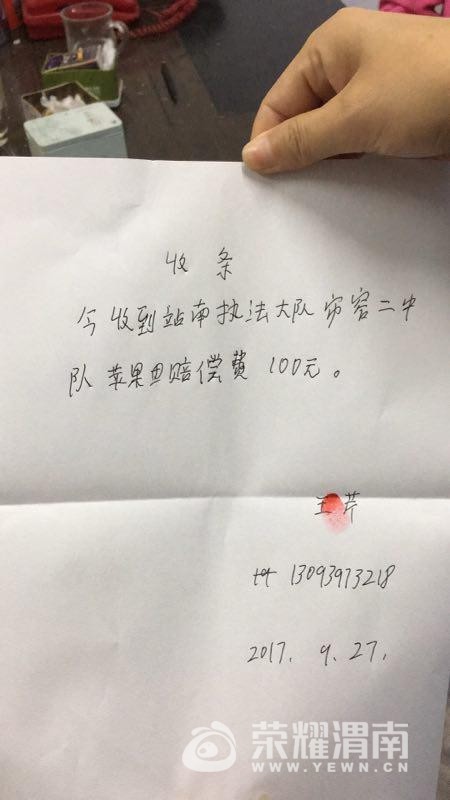 收条
今收到站南执法大队市容二中
队苹果电赔偿费 100元。
王芹
13093973218
2017. 9. 27.
荣耀渭南
WWW.YEWN.CN